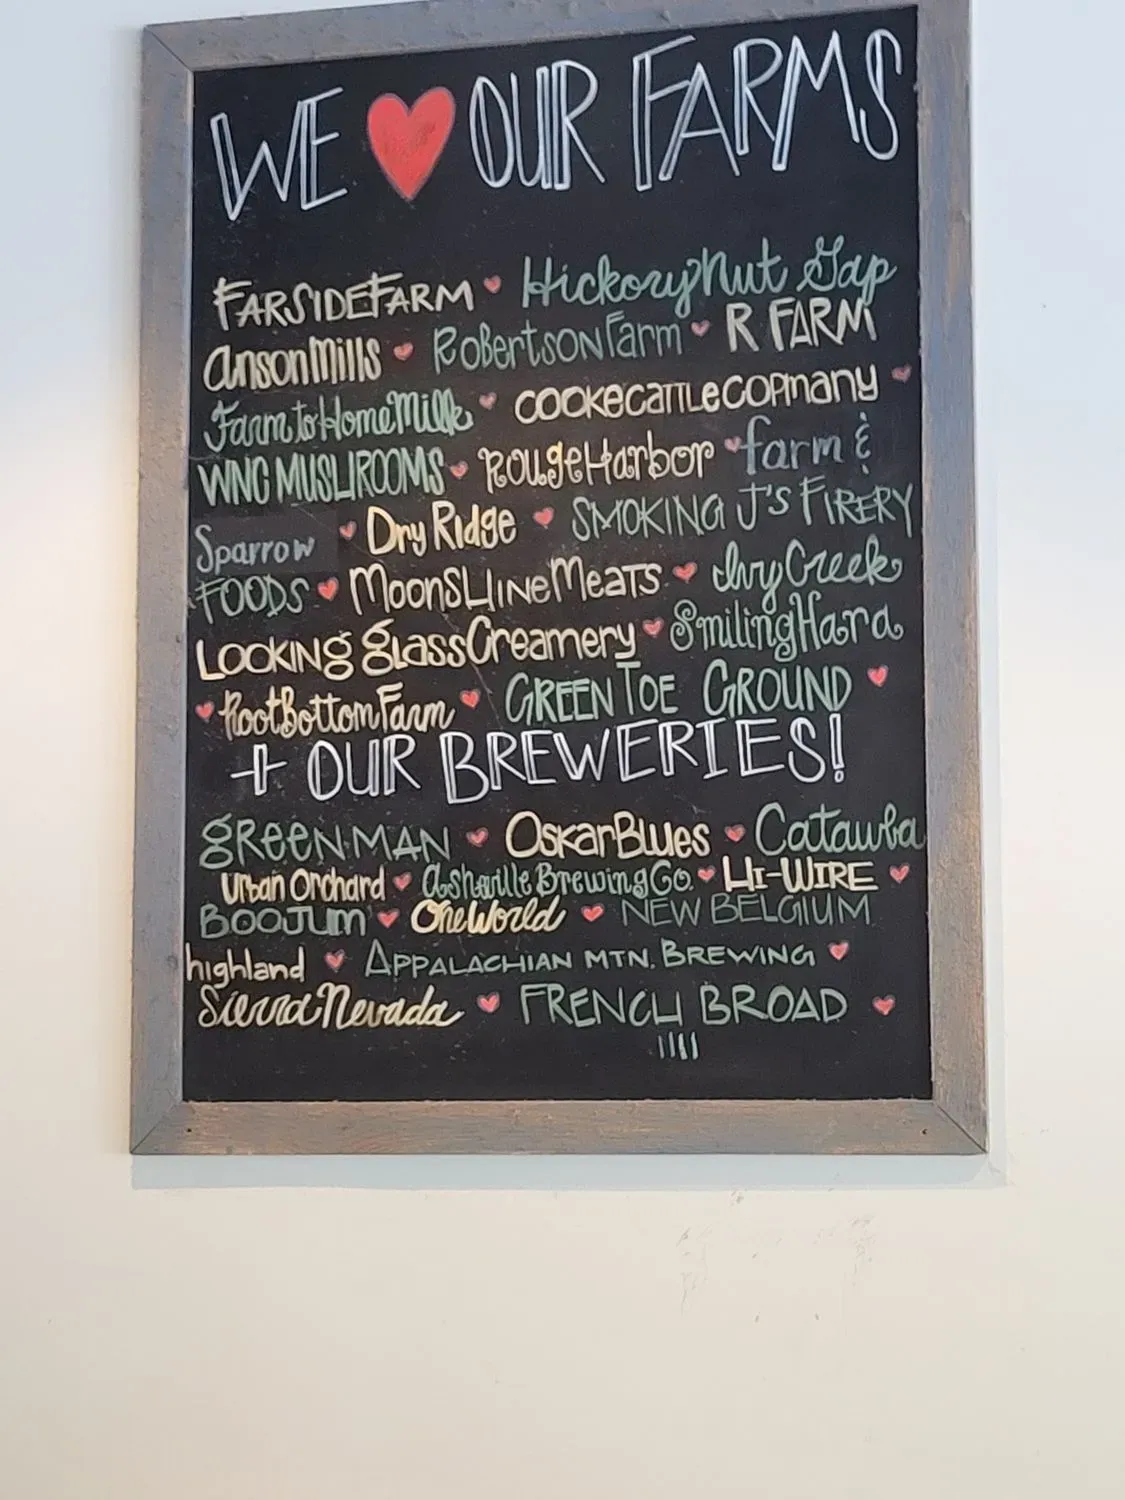 WE ♥ OUR FARMS
FARSIDEFARM ♥ HickoryNut Gap
ansonMills ♥ RobertsonFarm ♥ R FARM
FarmtoHomeMilk ♥ COOKECATTLECOPMANY ♥
WNC MUSHROOMS ♥ ROUgeHarbor ♥ farm &
Sparrow ♥ Dry Ridge ♥ SMOKING J'S FIRERY
FOODS ♥ MOONSHINEMEATS ♥ IvyCreek
LOOKING glassCreamery ♥ SmilingHara
♥ RootBottomFarm ♥ GREEN TOE GROUND ♥
+ OUR BREWERIES!
GREEN MAN ♥ OskarBlues ♥ Catawba
Urban Orchard ♥ AshevilleBrewingCo. ♥ HI-WIRE ♥
BOOJUM ♥ OneWorld ♥ NEW BELGIUM
highland ♥ APPALACHIAN MTN. BREWING ♥
SierraNevada ♥ FRENCH BROAD ♥